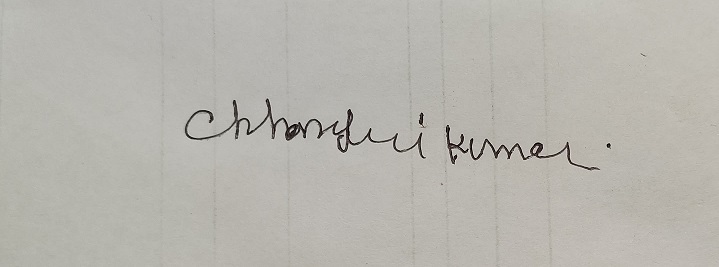 Chhanguri Kumar.